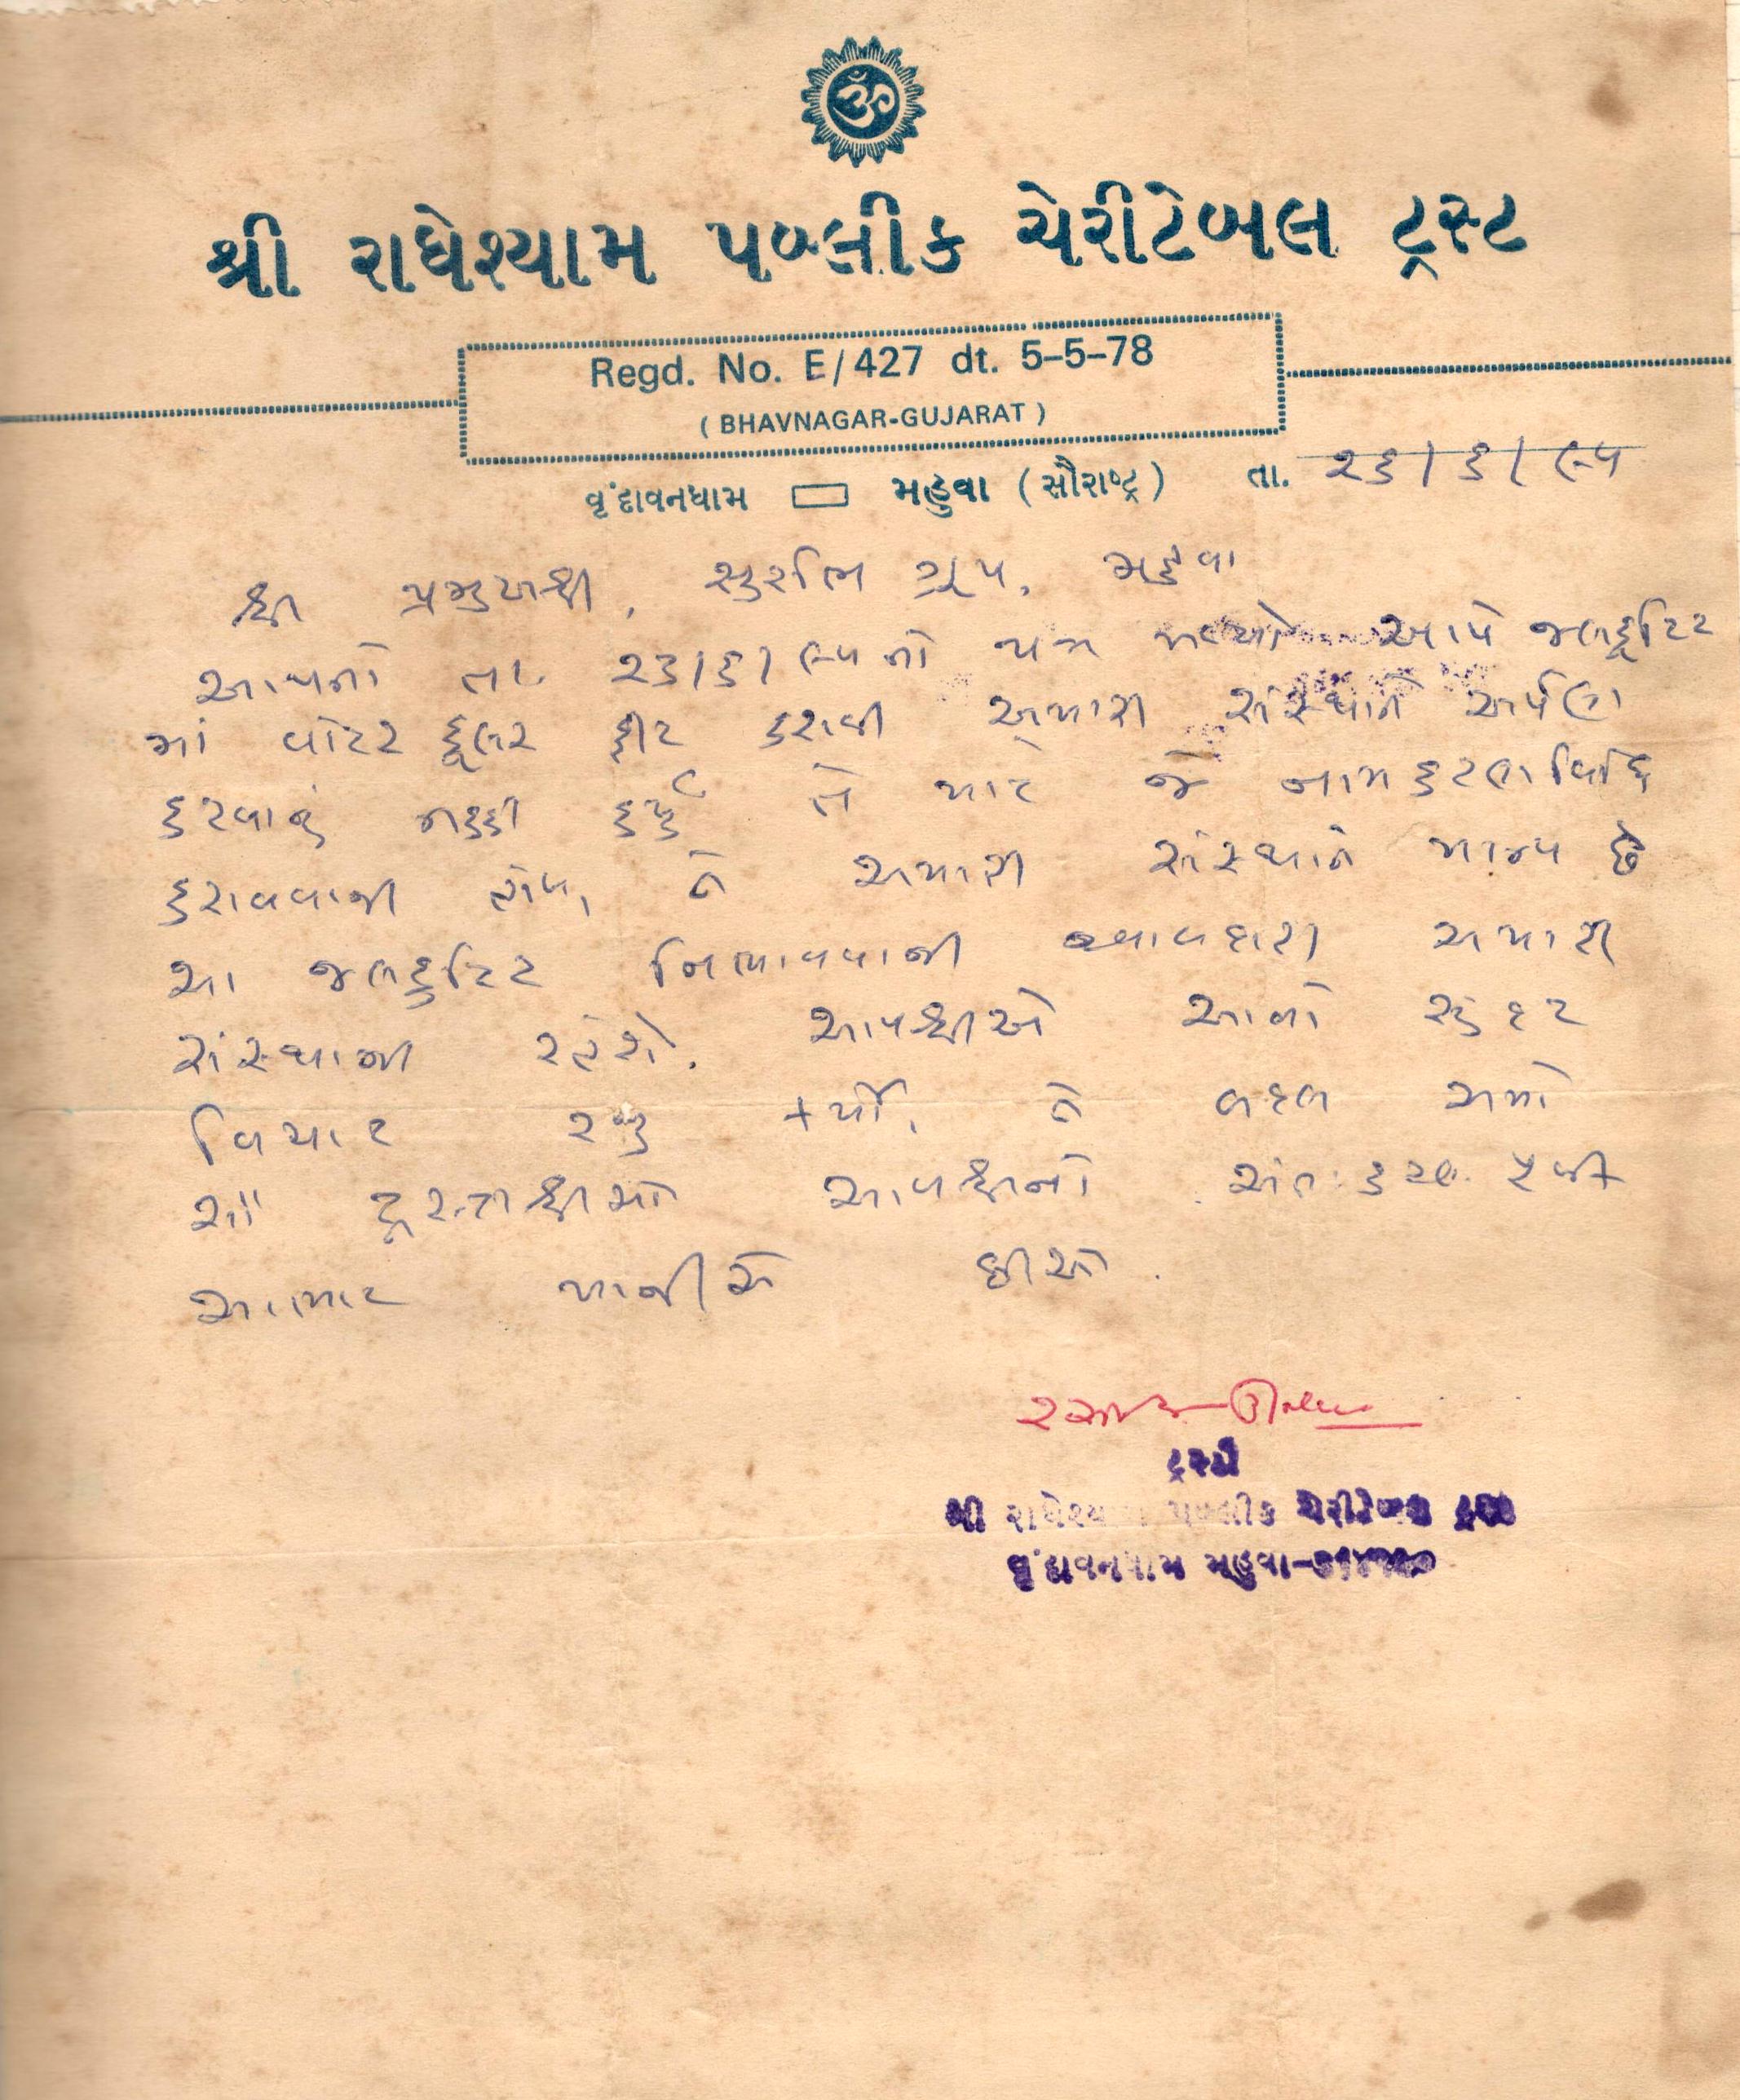 ૐ
શ્રી રાધેશ્યામ પબ્લીક ચેરીટેબલ ટ્રસ્ટ
Regd. No. E/427 dt. 5-5-78
( BHAVNAGAR-GUJARAT )
વૃંદાવનધામ મહુવા ( સૌરાષ્ટ્ર ) તા. ૨૩/૬/૯૫
શ્રી પ્રમુખશ્રી, સુરભિ ગ્રૂપ, મહુવા
આપનો તા. ૨૩/૬/૯૫નો પત્ર મલ્યો આપે જલકૂટિર
માં વોટર કૂલર ફીટ કરાવી અમારી સંસ્થાને અર્પણ
કરવાનું નક્કી કર્યું તે માટે જે નામકરણ વિધિ
કરાવવાની હોય, તે અમારી સંસ્થાને માન્ય છે
આ જલકુટિર નિભાવવાની જવાબદારી અમારી
સંસ્થાની રહેશે. આપશ્રીએ આવો સુંદર
વિચાર રજુ કર્યો, તે બદલ અમો
સૌ ટ્રસ્ટીશ્રીઓ આપશ્રીનો અંતઃકરણ પૂર્વક
આભાર માનીએ છીએ.
ટ્રસ્ટી
શ્રી રાધેશ્યામ પબ્લીક ચેરીટેબલ ટ્રસ્ટ
વૃંદાવનધામ મહુવા-